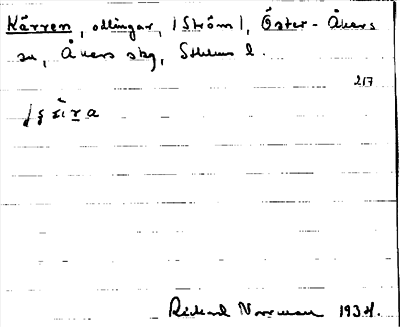 Kärren, odlingar, (Ström), Öster-Åkers
sn, Åkers skg, Sthlms l.
217
Rickard Norrman 1934.